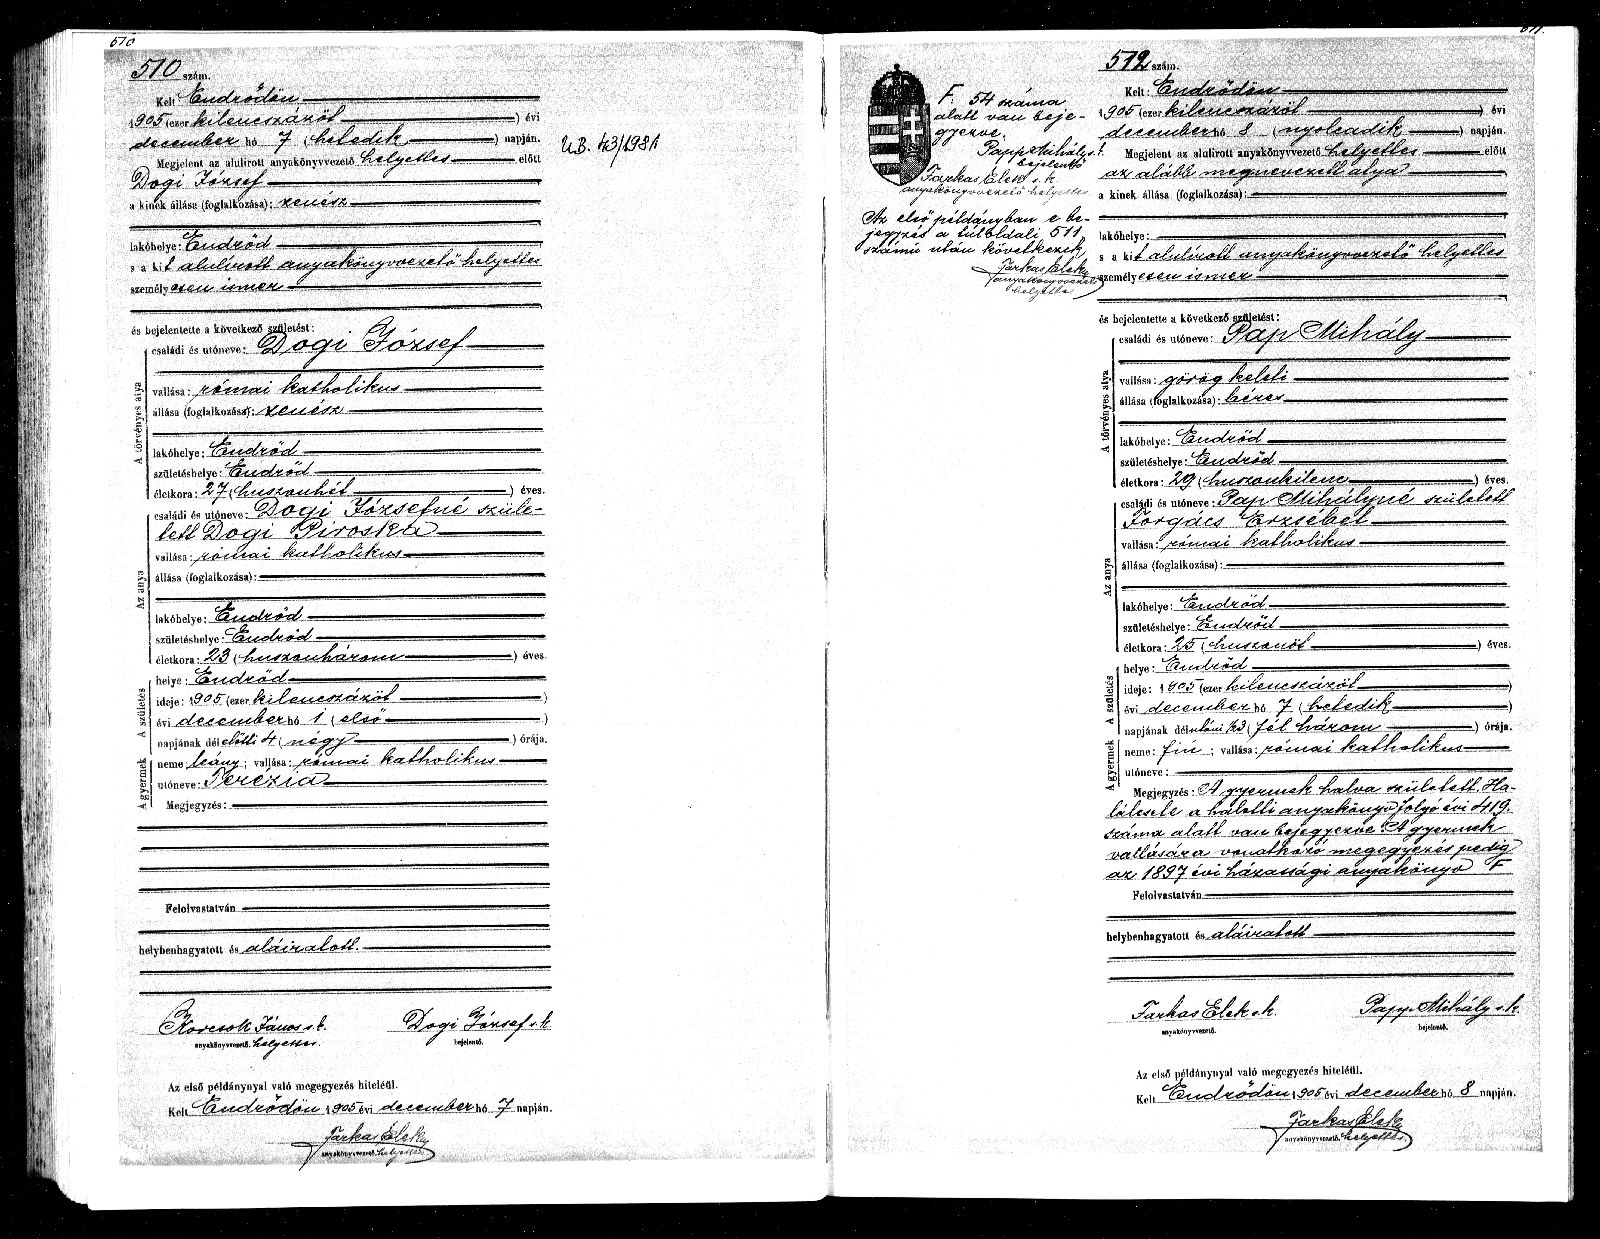 510
510 szám.
Kelt Endrődön,
1905 (ezer kilenczszázöt ) évi
december hó 7 (hetedik ) napján.
Megjelent az alulirott anyakönyvvezető helyettes előtt
Dogi József
a kinek állása (foglalkozása): zenész
lakóhelye: Endrőd
s a kit alulírott anyakönyvvezető helyettes
személyesen ismer
és bejelentette a következő születést:
A törvényes atya
családi és utóneve: Dogi József
vallása: római katholikus
állása (foglalkozása): zenész
lakóhelye: Endrőd
születéshelye: Endrőd
életkora: 27 (huszonhét ) éves.
Az anya
családi és utóneve: Dogi Józsefné szüle-
tett Dogi Piroska
vallása: római katholikus
állása (foglalkozása):
lakóhelye: Endrőd
születéshelye: Endrőd
életkora: 23 (huszonhárom ) éves.
A születés
helye: Endrőd
ideje: 1905 (ezer kilenczszázöt )
évi december hó 1 (első )
napjának délelőtti 4 (négy ) órája.
A gyermek
neme: leány; vallása: római katholikus
utóneve: Terézia
Megjegyzés:
Felolvastatván
helybenhagyatott és aláiratott.
Korcsok János s. k. Dogi József s. k.
anyakönyvvezető. helyettes. bejelentő.
Az első példánynyal való megegyezés hiteléül.
Kelt Endrődön 1905 évi december hó 7 napján.
Farkas Elek
anyakönyvvezető. helyettes.
U.B. 43/1981
511.
F. 54 száma
alatt van beje-
gyezve.
Papp Mihály s. k.
bejelentő
Farkas Elek s. k.
anyakönyvvezető helyettes.
Az első példányban e be-
jegyzés a túloldali 511
számú után következik
Farkas Elek
anyakönyvvezető
helyettes
512 szám.
Kelt: Endrődön
1905 (ezer kilenczszázöt ) évi
december hó 8 (nyolcadik ) napján.
Megjelent az alulirott anyakönyvvezető helyettes előtt
az alább megnevezett atya
a kinek állása (foglalkozása):
lakóhelye:
s a kit alulírott anyakönyvvezető helyettes
személyesen ismer
és bejelentette a következő születést:
A törvényes atya
családi és utóneve: Pap Mihály
vallása: görög keleti
állása (foglalkozása): béres
lakóhelye: Endrőd
születéshelye: Endrőd
életkora: 29 (huszonkilenc ) éves.
Az anya
családi és utóneve: Pap Mihályné született
Forgács Erzsébet
vallása: római katholikus
állása (foglalkozása):
lakóhelye: Endrőd
születéshelye: Endrőd
életkora: 25 (huszonöt ) éves.
A születés
helye: Endrőd
ideje: 1905 (ezer kilenczszázöt )
évi december hó 7 (hetedik )
napjának délutáni ½3 (fél három ) órája.
A gyermek
neme: fiu; vallása: római katholikus
utóneve:
Megjegyzés: A gyermek halva született. Ha-
lálesete a halotti anyakönyv folyó évi 419.
száma alatt van bejegyezve. A gyermek
vallására vonatkozó megegyezés pedig
az 1897 évi házassági anyakönyv F
Felolvastatván
helybenhagyatott és aláiratott
Farkas Elek s. k. Papp Mihály s. k.
anyakönyvvezető. bejelentő.
Az első példánynyal való megegyezés hiteléül.
Kelt Endrődön 1905 évi december hó 8 napján.
Farkas Elek
anyakönyvvezető. helyettes.